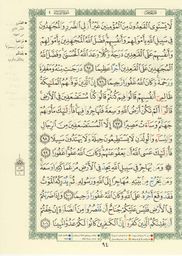 لَّا يَسْتَوِي الْقَاعِدُونَ مِنَ الْمُؤْمِنِينَ غَيْرُ أُولِي الضَّرَرِ وَالْمُجَاهِدُونَ
فِي سَبِيلِ اللَّهِ بِأَمْوَالِهِمْ وَأَنفُسِهِمْ فَضَّلَ اللَّهُ الْمُجَاهِدِينَ بِأَمْوَالِهِمْ
وَأَنفُسِهِمْ عَلَى الْقَاعِدِينَ دَرَجَةً وَكُلًّا وَعَدَ اللَّهُ الْحُسْنَىٰ وَفَضَّلَ اللَّهُ
الْمُجَاهِدِينَ عَلَى الْقَاعِدِينَ أَجْرًا عَظِيمًا ٩٥ دَرَجَاتٍ مِّنْهُ وَمَغْفِرَةً
وَرَحْمَةً وَكَانَ اللَّهُ غَفُورًا رَّحِيمًا ٩٦ إِنَّ الَّذِينَ تَوَفَّاهُمُ الْمَلَائِكَةُ
ظَالِمِي أَنفُسِهِمْ قَالُوا فِيمَ كُنتُمْ قَالُوا كُنَّا مُسْتَضْعَفِينَ فِي الْأَرْضِ
قَالُوا أَلَمْ تَكُنْ أَرْضُ اللَّهِ وَاسِعَةً فَتُهَاجِرُوا فِيهَا فَأُولَٰئِكَ مَأْوَاهُمْ
جَهَنَّمُ وَسَاءَتْ مَصِيرًا ٩٧ إِلَّا الْمُسْتَضْعَفِينَ مِنَ الرِّجَالِ
وَالنِّسَاءِ وَالْوِلْدَانِ لَا يَسْتَطِيعُونَ حِيلَةً وَلَا يَهْتَدُونَ سَبِيلًا ٩٨
فَأُولَٰئِكَ عَسَى اللَّهُ أَن يَعْفُوَ عَنْهُمْ وَكَانَ اللَّهُ عَفُوًّا غَفُورًا ٩٩
وَمَن يُهَاجِرْ فِي سَبِيلِ اللَّهِ يَجِدْ فِي الْأَرْضِ مُرَاغَمًا كَثِيرًا وَسَعَةً
وَمَن يَخْرُجْ مِن بَيْتِهِ مُهَاجِرًا إِلَى اللَّهِ وَرَسُولِهِ ثُمَّ يُدْرِكْهُ الْمَوْتُ
فَقَدْ وَقَعَ أَجْرُهُ عَلَى اللَّهِ وَكَانَ اللَّهُ غَفُورًا رَّحِيمًا ١٠٠ وَإِذَا ضَرَبْتُمْ
فِي الْأَرْضِ فَلَيْسَ عَلَيْكُمْ جُنَاحٌ أَن تَقْصُرُوا مِنَ الصَّلَاةِ إِنْ خِفْتُمْ
أَن يَفْتِنَكُمُ الَّذِينَ كَفَرُوا إِنَّ الْكَافِرِينَ كَانُوا لَكُمْ عَدُوًّا مُّبِينًا ١٠١
٩٤